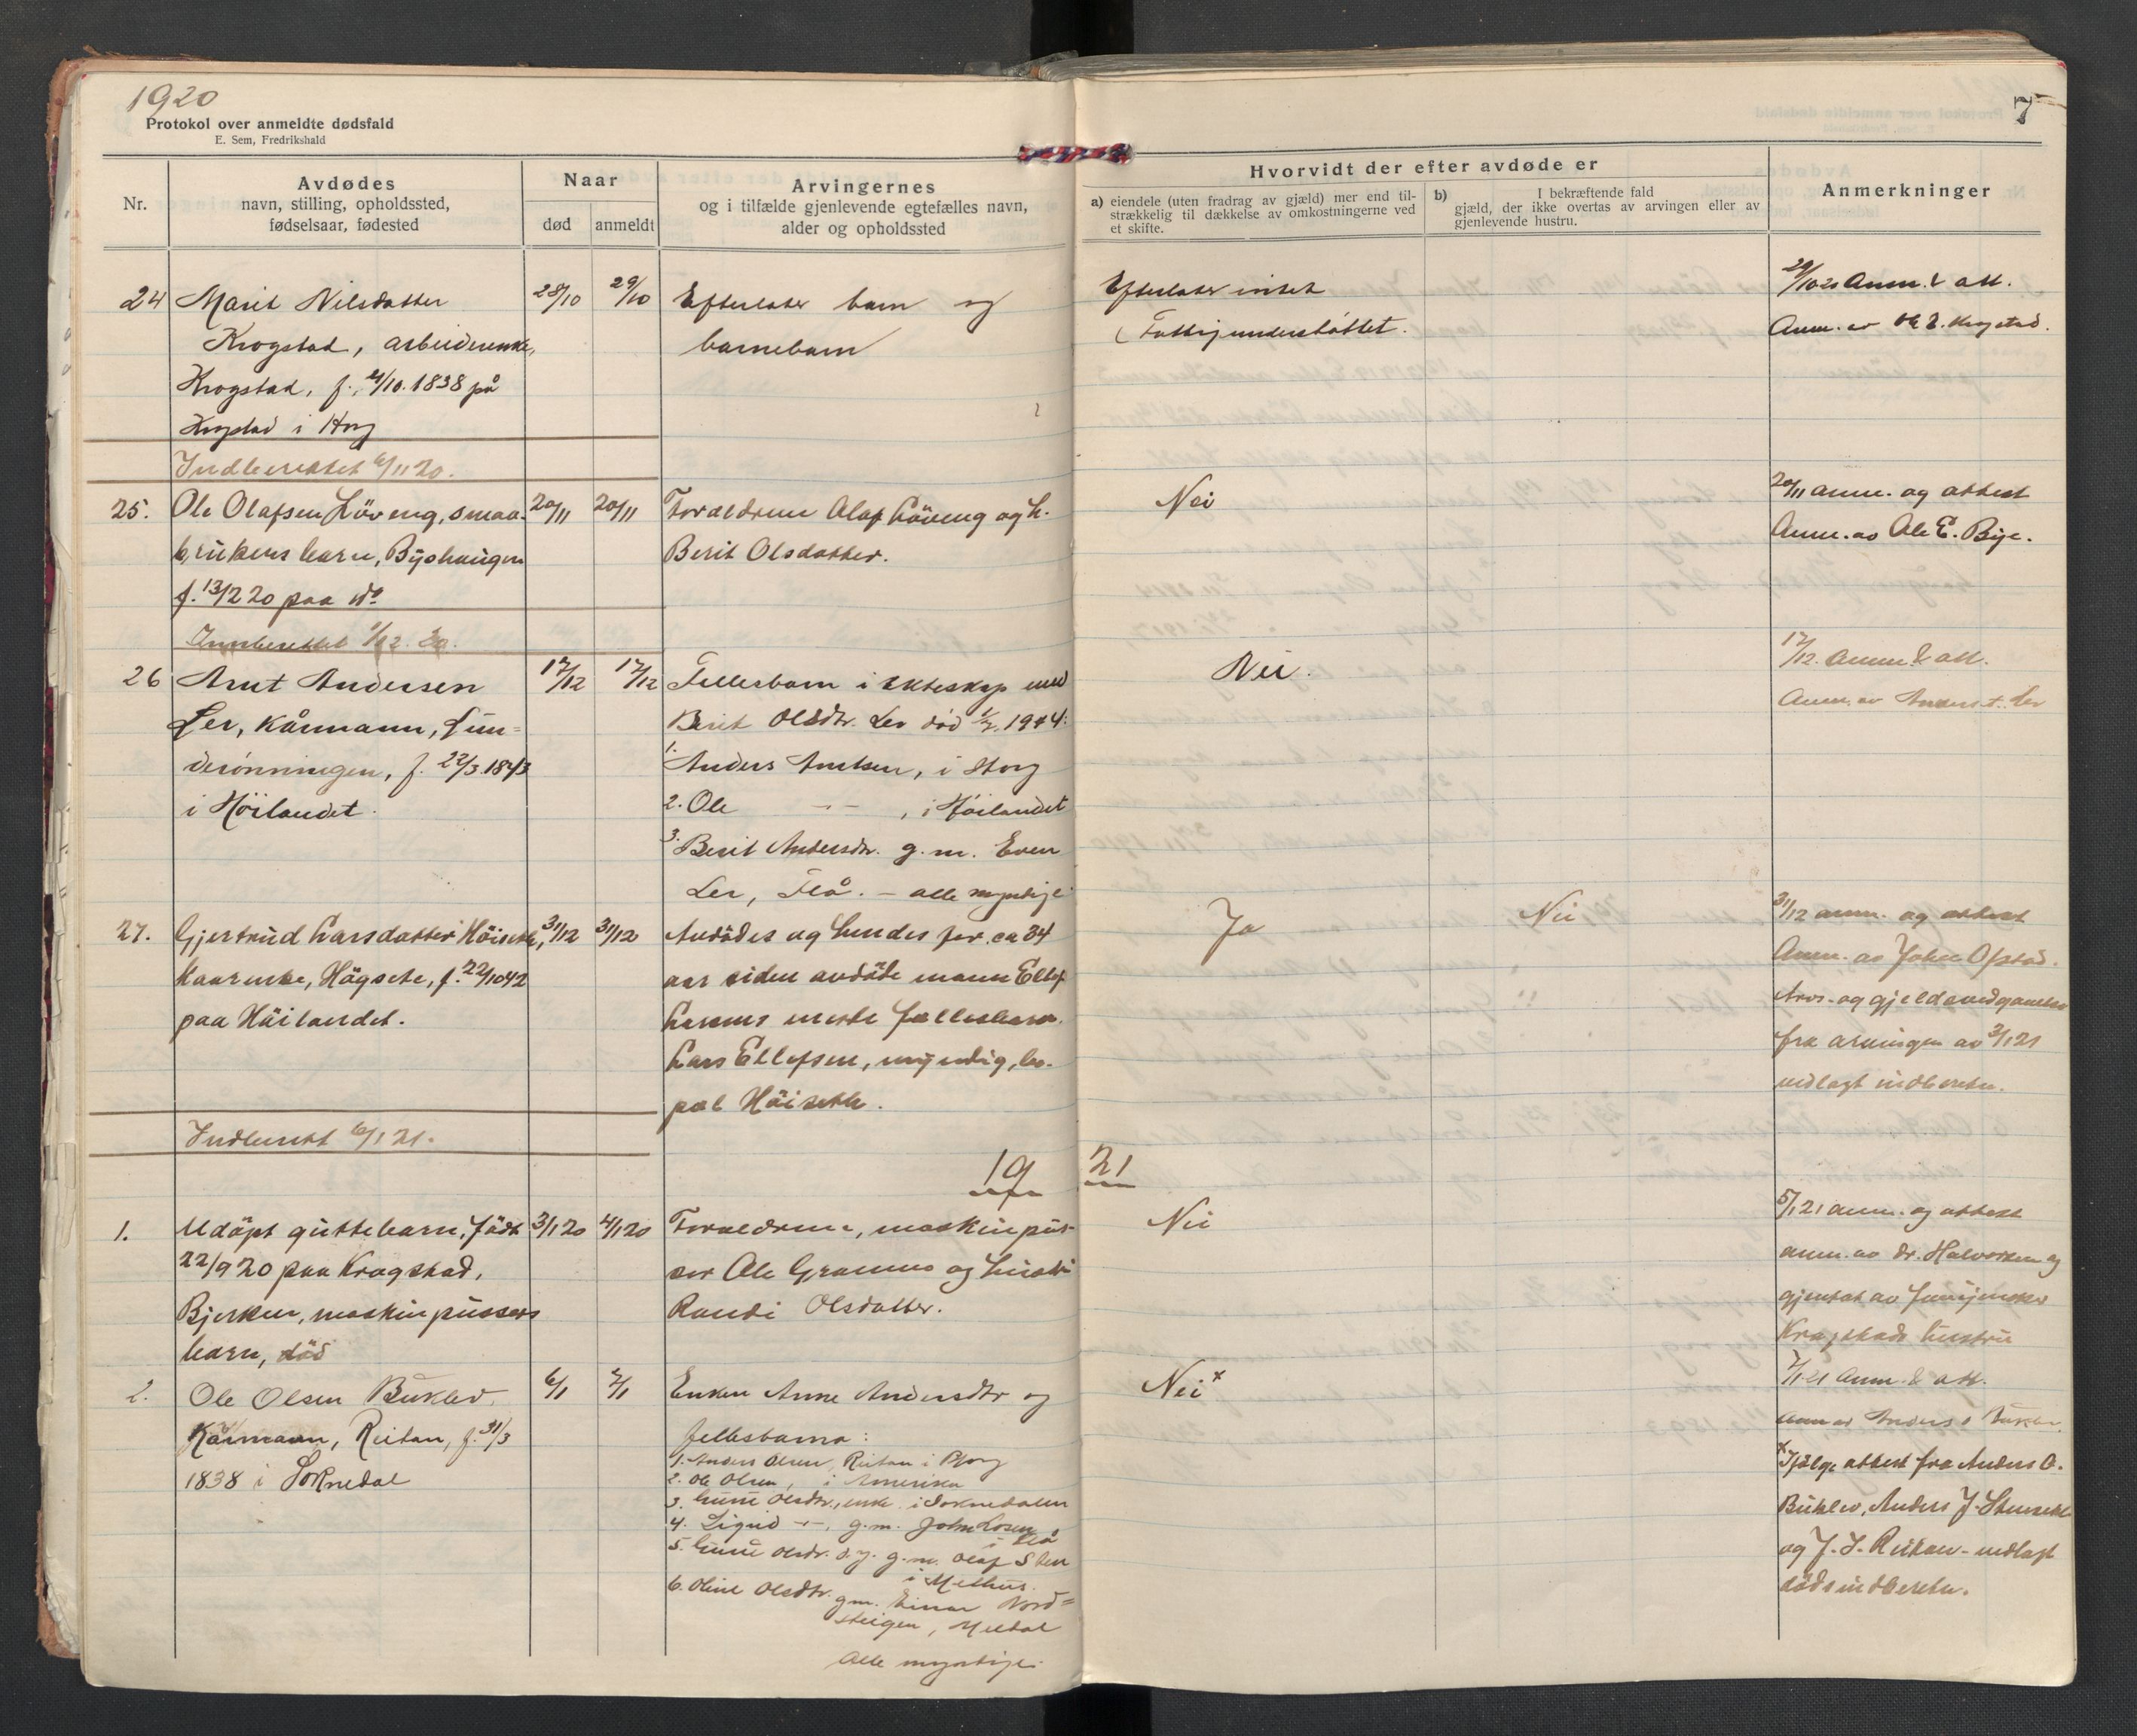 1920
Protokol over anmeldte dødsfald
E. Sem, Fredrikshald
7
Nr.
Avdødes
navn, stilling, opholdssted,
fødselsaar, fødested
Naar
død
anmeldt
Arvingernes
og i tilfælde gjenlevende egtefælles navn,
alder og opholdssted
Hvorvidt der efter avdøde er
a) eiendele (uten fradrag av gjæld) mer end til-
strækkelig til dækkelse av omkostningerne ved
et skifte.
b) I bekræftende fald
gjæld, der ikke overtas av arvingen eller av
gjenlevende hustru.
Anmerkninger
24 Marit Nilsdatter
Krogstad, arbeiderenke,
Krogstad, f. 21/10.1838 på
Krogstad i Horg
28/10
29/10
Efterlater barn og
barnebarn
Efterlater intet
(Fattigunderstøttet.
29/10 20 Anm. & att.
Anm. av Ole E. Krogstad.
Indberettet 6/11 20.
25. Ole Olafsen Löveng, smaa-
brukers barn, Byshaugen
f. 13/2 20 paa do
20/11
20/11
Forældrene Olaf Löveng og h.
Berit Olsdatter.
Nei
20/11 anm. og attest
Anm. av Ole E. Bye.
Innberettet 1/12. 20.
26 Arnt Andersen
Ler, kårmann, Sun=
derønningen, f. 22/3.1843
i Höilandet.
17/12
17/12
Fellesbarn i ekteskap med
Berit Olsdtr. Ler död 1/2. 1944:
1. Anders Arntsen, i Horg
2. Ole -"- , i Höilandet
3. Berit Andersdtr. g.m. Even
Ler, Flå. - alle myndige
Nei.
17/12. Anm. & att.
Anm. av Anders A. Ler
27. Gjertrud Larsdatter Höiseth,
Kaarenke, Högsete, f. 22/10 42
paa Höilandet.
31/12
31/12
Avdødes og hendes for ca 34
aar siden avdöde mann Ellef
Larsens eneste fællesbarn
Lars Ellefsen, myndig, bo-
pæl Höiseth.
Ja
Nei
31/12 anm. og attest
Anm. av John Opstad.
Arvs- og gjeldsvedgaaelse
fra arvingen av 3/1 21
vedlagt indberetn.
Indberett 6/1 21.
19 21
1. Udöpt guttebarn, födt
22/9 20 paa Krogstad,
Bjerken, maskinpussers
barn, död
3/1 20
4/1 20
Forældrene, maskinpus-
ser Ole Gramno og hustru
Randi Olsdatter.
Nei
5/1 21 anm. og attest
anm. av dr. Halvorsen og
gjentat av
Krogstads hustru
2. Ole Olsen Buklev.
Kårmann, Reitan, f. 31/3
1838 i Soknedal
6/1
7/1
Enken Anne Andersdtr og
fellesbarna:
1. Anders Olsen, Reitan i Horg
2. Ole Olsen, i Amerika
3. Guru Olsdtr., enke i Soknedalen
4. Sigrid -"-, g.m. John Losen
i Flå
5. Guru Olsdr. d.y. g.m. Olaf Sten
i Melhus.
6. Oline Olsdtr. gm. Einar Nord=
steigen, Meldal
Alle myndige.
Nei x
7/1 21 Anm. & att.
Anm av Anders O Buklev.
x Ifølge attest fra Anders O.
Buklev, Anders J. Stenseth
og J. J. Reitan - vedlagt
dödsindberetn.